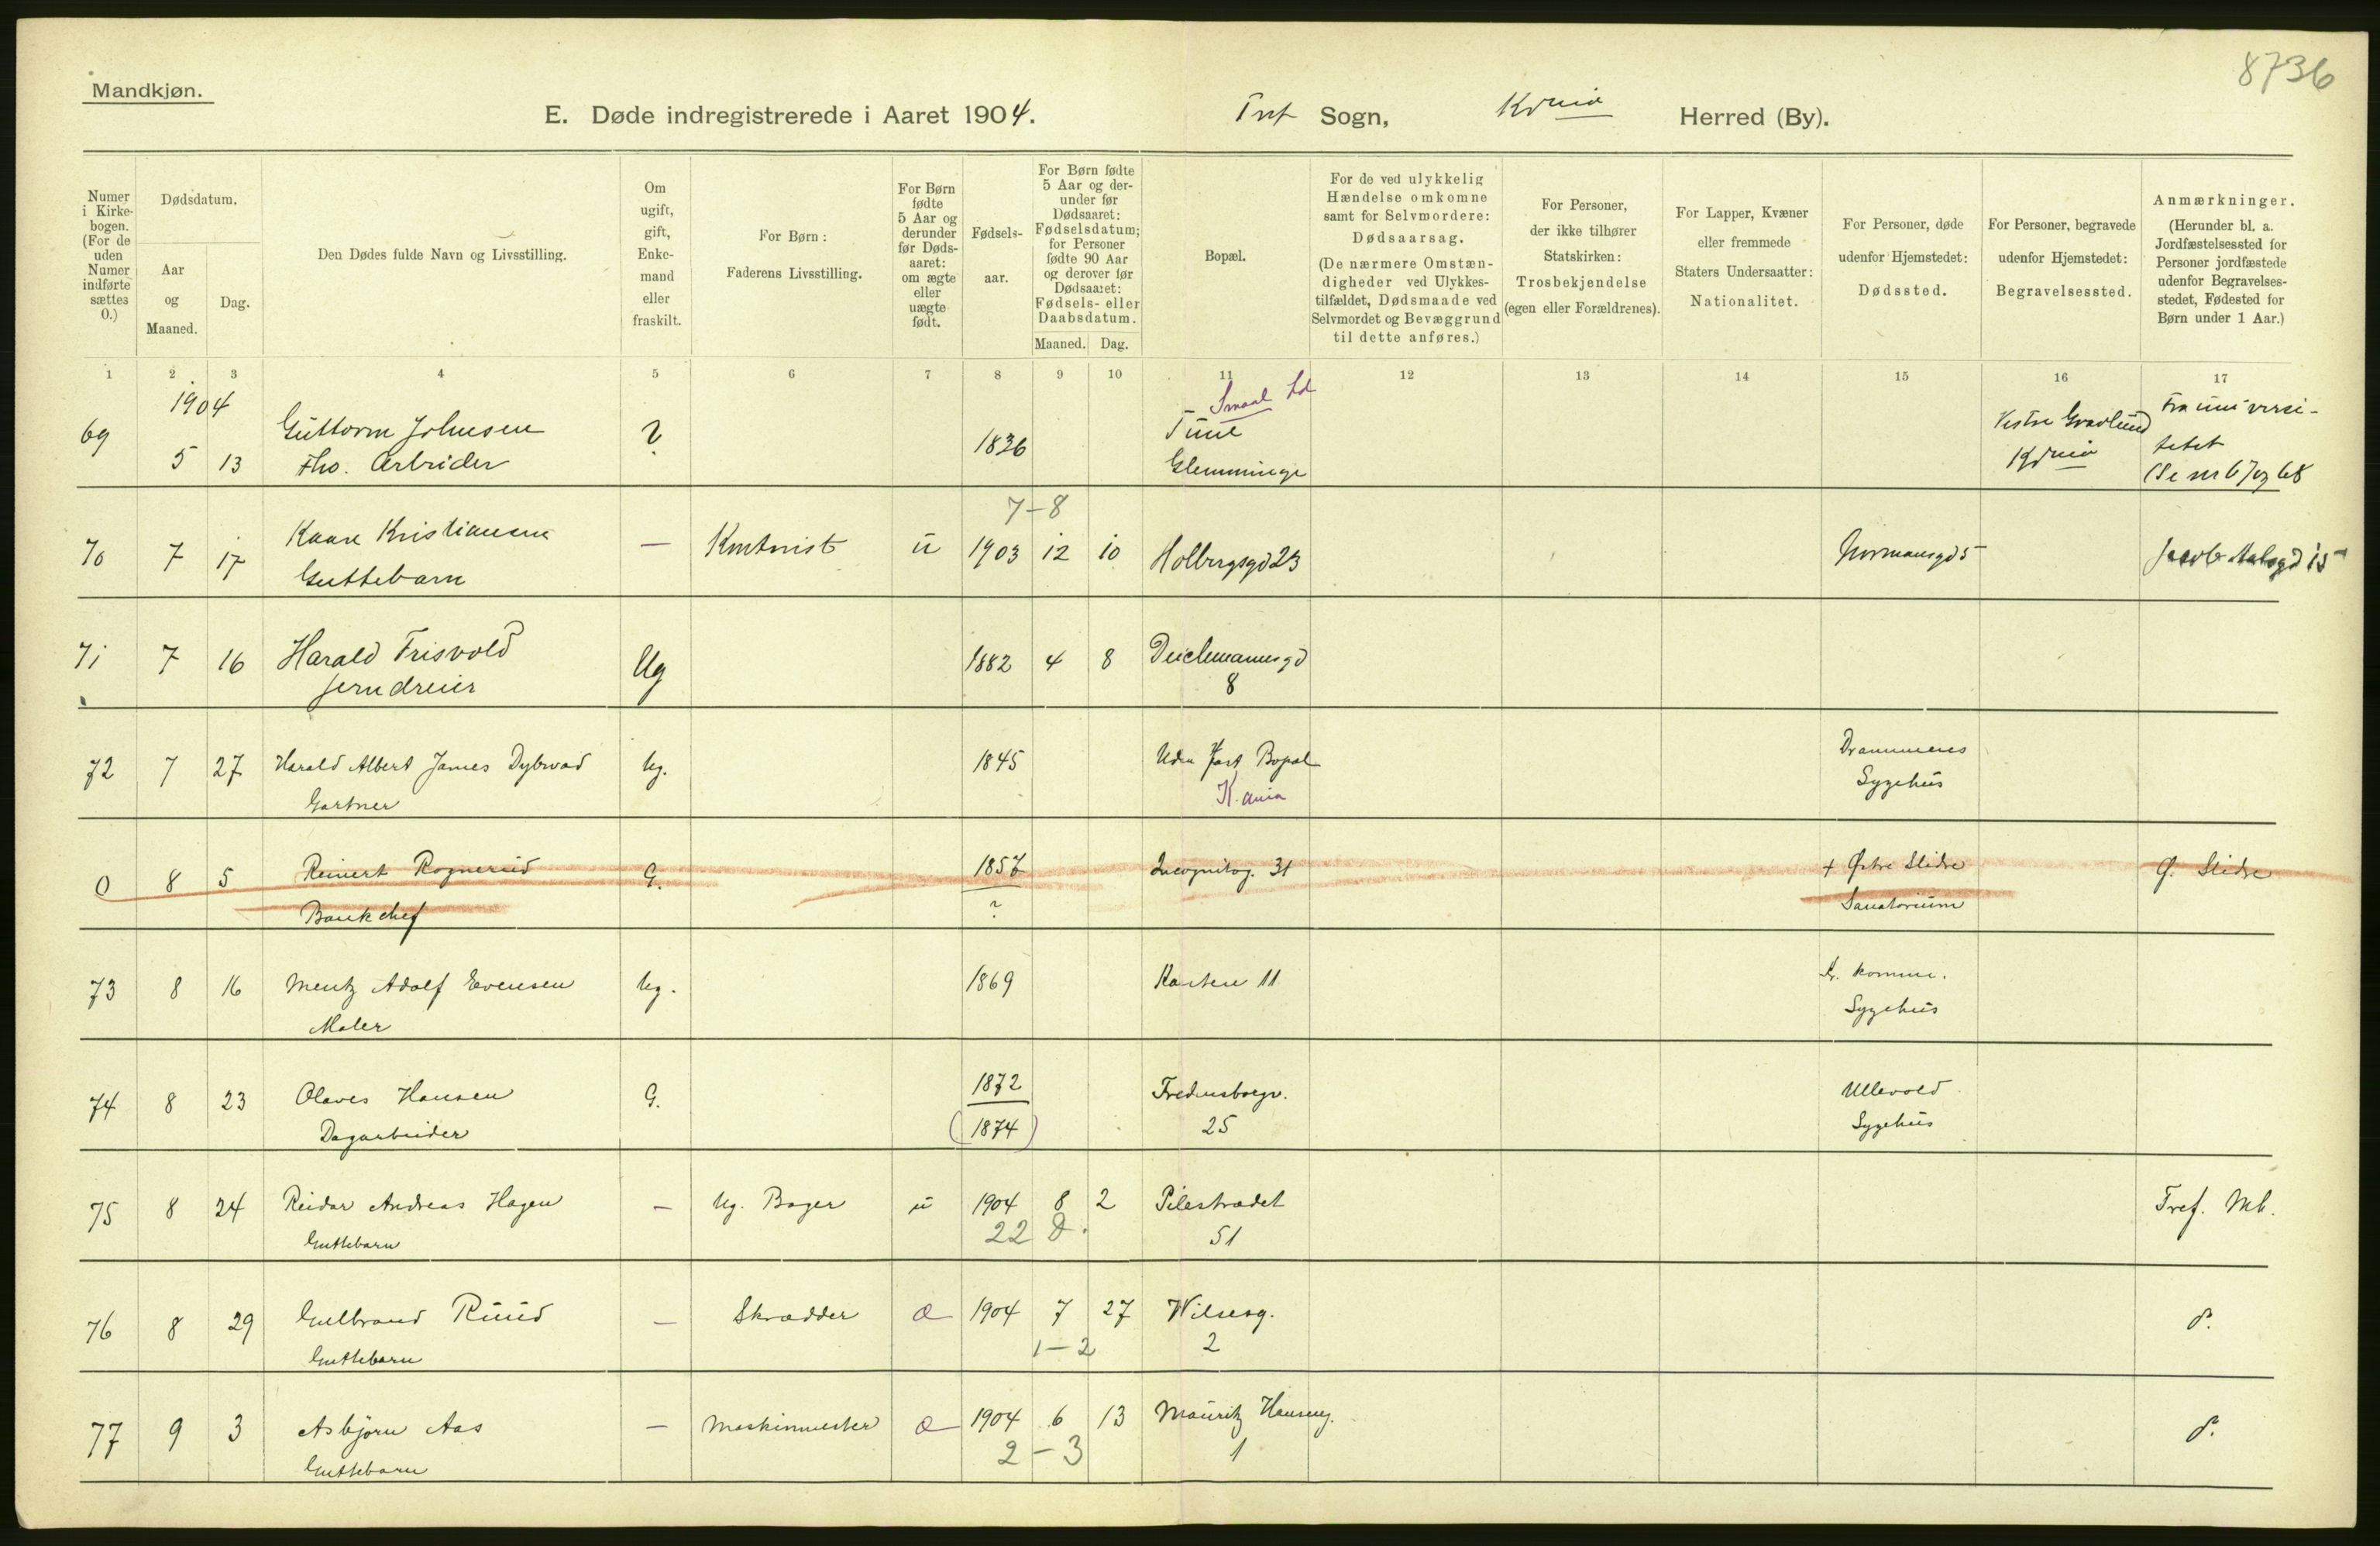 8736
Mandkjøn.
E. Døde indregistrerede i Aaret 1904.
Tref Sogn,
Kr.nia
Herred (By).
Numer i Kirke-bogen. (For de uden Numer indførte sættes 0.)
Dødsdatum.
Aar og Maaned.
Dag.
Den Dødes fulde Navn og Livsstilling.
Om ugift, gift, Enke-mand eller fraskilt.
For Børn: Faderens Livsstilling.
For Børn fødte 5 Aar og derunder før Døds-aaret: om ægte eller uægte født.
Fødsels-aar.
For Børn fødte 5 Aar og der-under før Dødsaaret: Fødselsdatum; for Personer fødte 90 Aar og derover før Dødsaaret: Fødsels- eller Daabsdatum.
Maaned. Dag.
Bopæl.
For de ved ulykkelig Hændelse omkomne samt for Selvmordere: Dødsaarsag. (De nærmere Omstæn-digheder ved Ulykkes-tilfældet, Dødsmaade ved Selvmordet og Bevæggrund til dette anføres.)
For Personer, der ikke tilhører Statskirken: Trosbekjendelse (egen eller Forældrenes).
For Lapper, Kvæner eller fremmede Staters Undersaatter: Nationalitet.
For Personer, døde udenfor Hjemstedet: Dødssted.
For Personer, begravede udenfor Hjemstedet: Begravelsessted.
Anmærkninger. (Herunder bl. a. Jordfæstelsessted for Personer jordfæstede udenfor Begravelses-stedet, Fødested for Børn under 1 Aar.)
1 2 3 4 5 6 7 8 9 10 11 12 13 14 15 16 17
1904
Smaal Ld
69 5 13 Guttorm Johnsen ? 1836 Tune Vestre Gravlund Fra universi-
Fho. Arbeider Glemminge Kr.nia tetet
(Se nr 67 og 68
7-8
70 7 17 Kaare Kristiansen — Kontorist u 1903 12 10 Holbergsgd 23 Normansgd 5 Jacob Aalsgd 15
Guttebarn
71 7 16 Harald Frisvold Ug 1882 4 8 Deichmannsgd
Jerndreier 8
72 7 27 Harald Albert James Dybwad Ug. 1845 Uden fast Bopæl Drammens
Gartner K.ania Sygehus
0 8 5 Reinert Rognerud G. 1857 Incognitog. 31 + Østre Slidre Ø. Slidre
Bankchef ? Sanatorium
73 8 16 Mentz Adolf Evensen Ug. 1869 Ranten 11 Kr. komm.
Maler Sygehus
74 8 23 Olaves Hansen G. 1872 Fredensborgv. Ullevold
Dagarbeider (1874) 25 Sygehus
75 8 24 Reidar Andreas Hagen — Ug. Bager u 1904 8 2 Pilestrædet Tref. Mk.
Guttebarn 22 D. 51
76 8 29 Gulbrand Ruud — Skrædder Æ 1904 7 27 Wilsesg. d.
Guttebarn 1-2 2
77 9 3 Asbjørn Aas — Maskinmester Æ 1904 6 13 Mauritz Hanseng. d.
Guttebarn 2-3 1